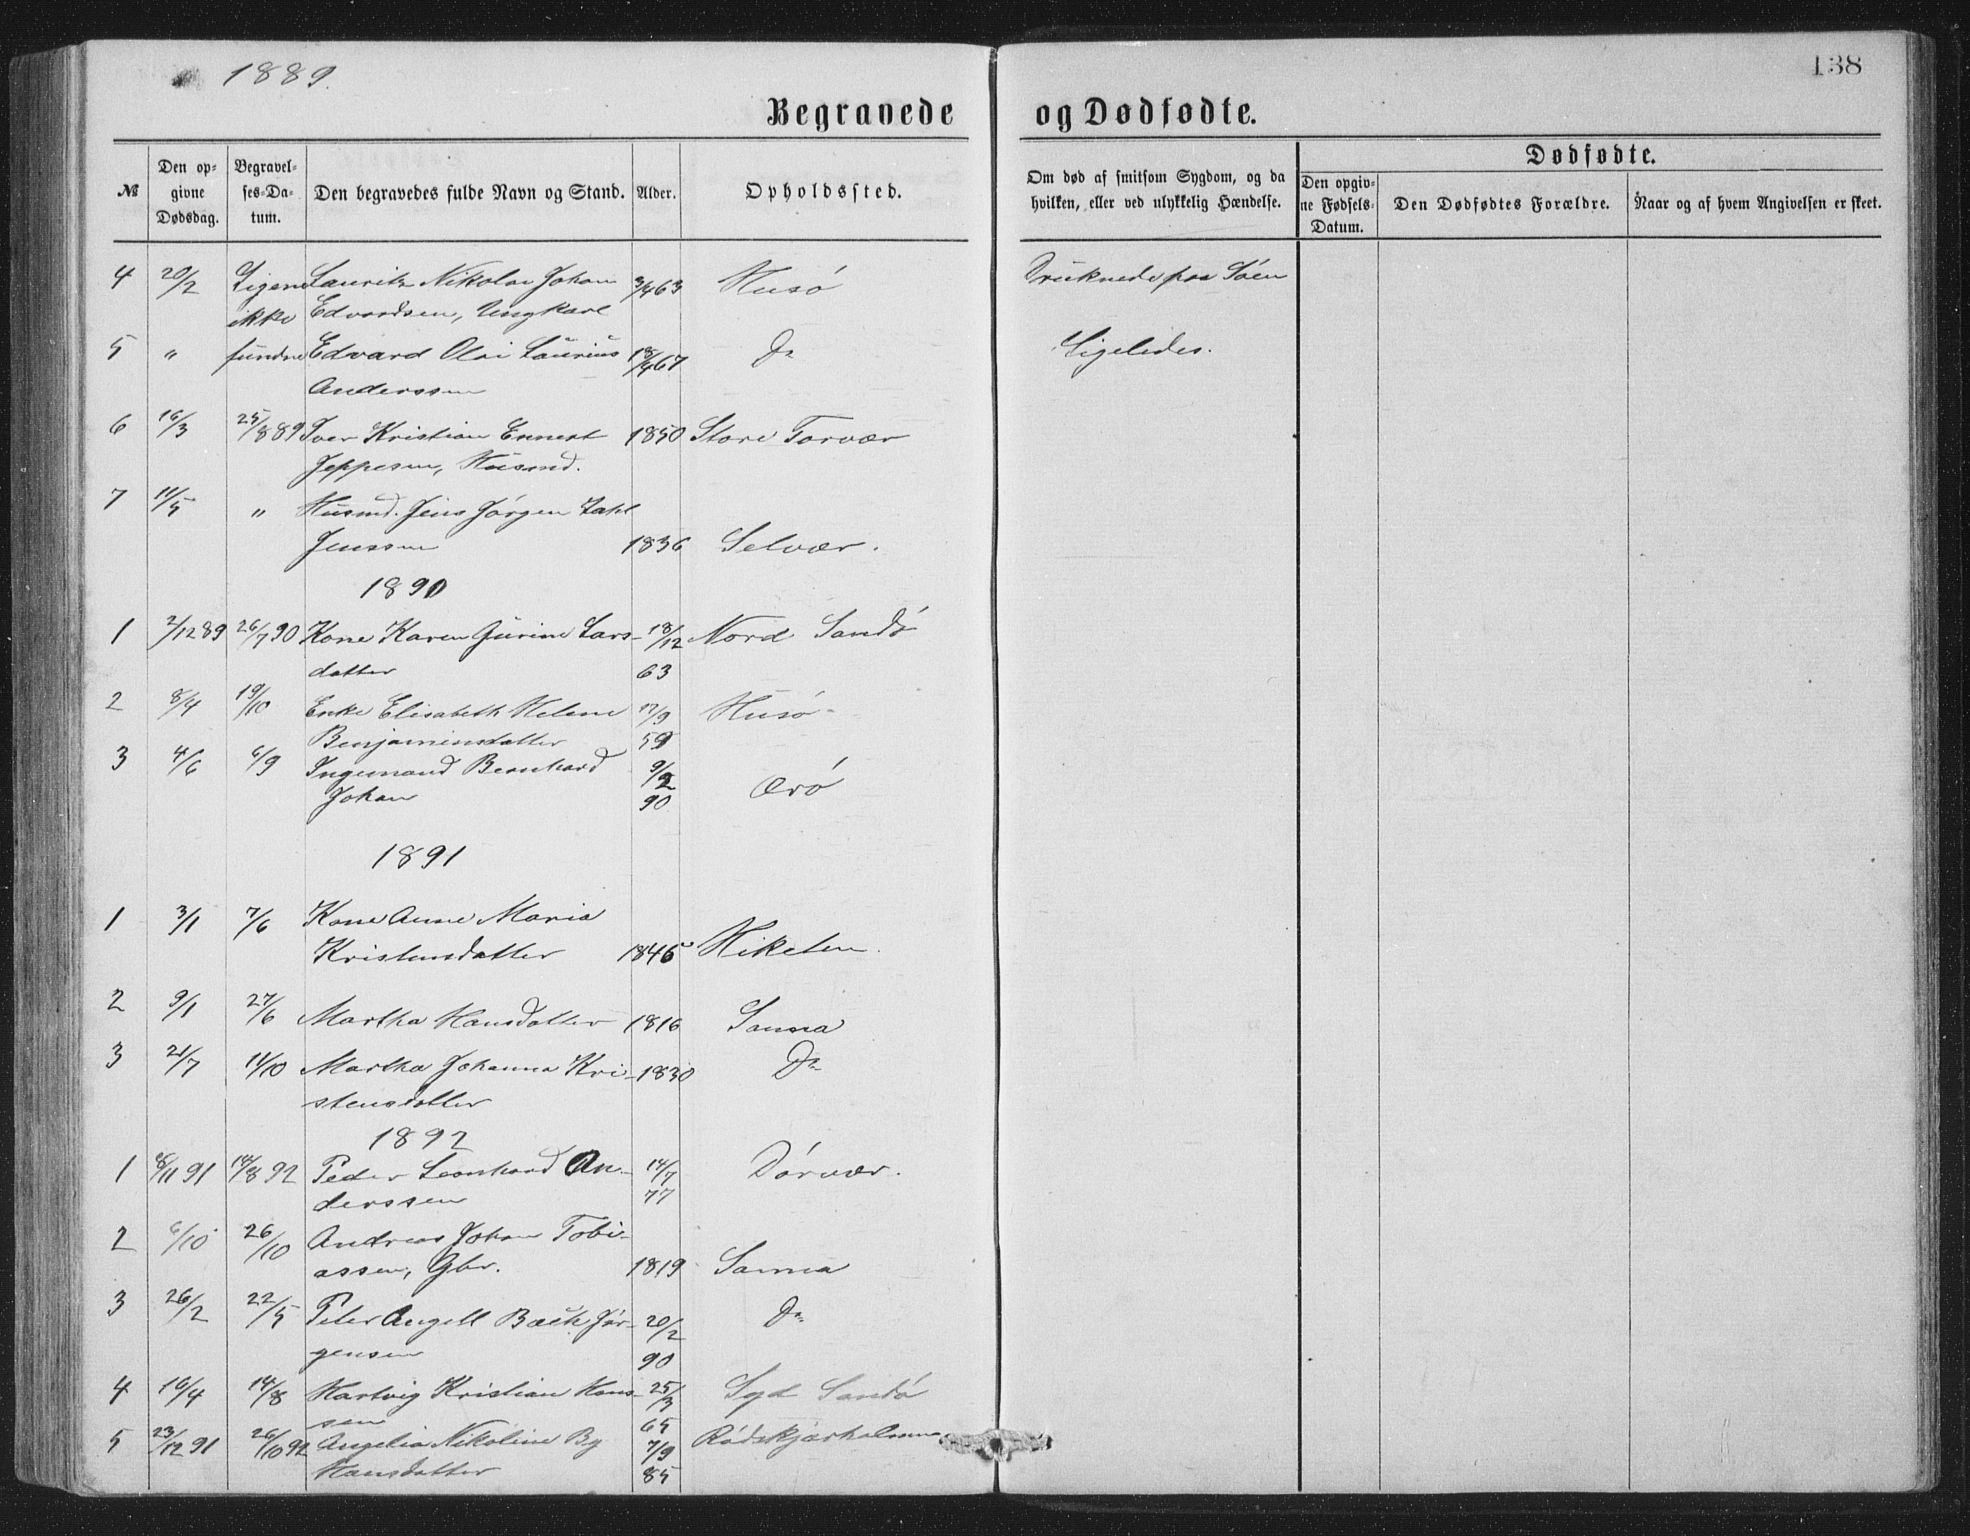 1889.
138
Begravede og Dødfødte.
№ Den opgivne Dødsdag. Begravelses-Datum. Den begravedes fulde Navn og Stand. Alder. Opholdssted. Om død af smitsom Sygdom, og da hvilken, eller ved ulykkelig Hændelse. Dødfødte. Den opgivne Fødsels-Datum. Den Dødfødtes Forældre. Naar og af hvem Angivelsen er skeet.
4 20/2 Ligene Lauritz Nikolai Johan 3/4 63 Husö Druknede paa Söen
ikke Edvardsen, Ungkarl
5 " fundne Edvard Olai Laurius 18/4 67 Do Ligeledes.
Anderssen
6 16/3 25/8 89 Iver Kristian Ennert 1850 Store Torvær
Jeppesen, Husmd.
7 11/5 " Husmd. Jens Jörgen Zahl
Jenssen 1836 Selvær.
1890
1 2/12 89 26/7 90 Kone Karen Gurine Lars- 18/12 Nord Sandö
datter 63
2 8/4 19/10 Enke Elisabeth Helene 17/9 Husö
Benjaminsdatter 59
3 4/6 6/9 Ingemand Bernhard 9/2
Johan 90 Ærö
1891
1 3/1 7/6 Kone Anne Maria
Kristensdatter 1846 Hikelen.
2 9/1 27/6 Martha Hansdatter 1816 Sanna
3 21/7 11/10 Martha Johanna Kri- 1830 Do
stensdatter
1892
1 8/11 91 14/8 92 Peder Leonhard An- 14/7 Dörvær.
derssen 77
2 6/10 26/10 Andreas Johan Tobi-
assen, Gbr. 1819 Sanna
3 26/2 22/5 Peter Angell Bach Jör- 20/2 Do
gensen 90
4 16/4 14/8 Hartvig Kristian Hans- 25/3 Syd Sandö
sen 65
5 23/12 91 26/10 92 Angelia Nikoline By 7/9 Rödskjærholmen
Hansdatter 85